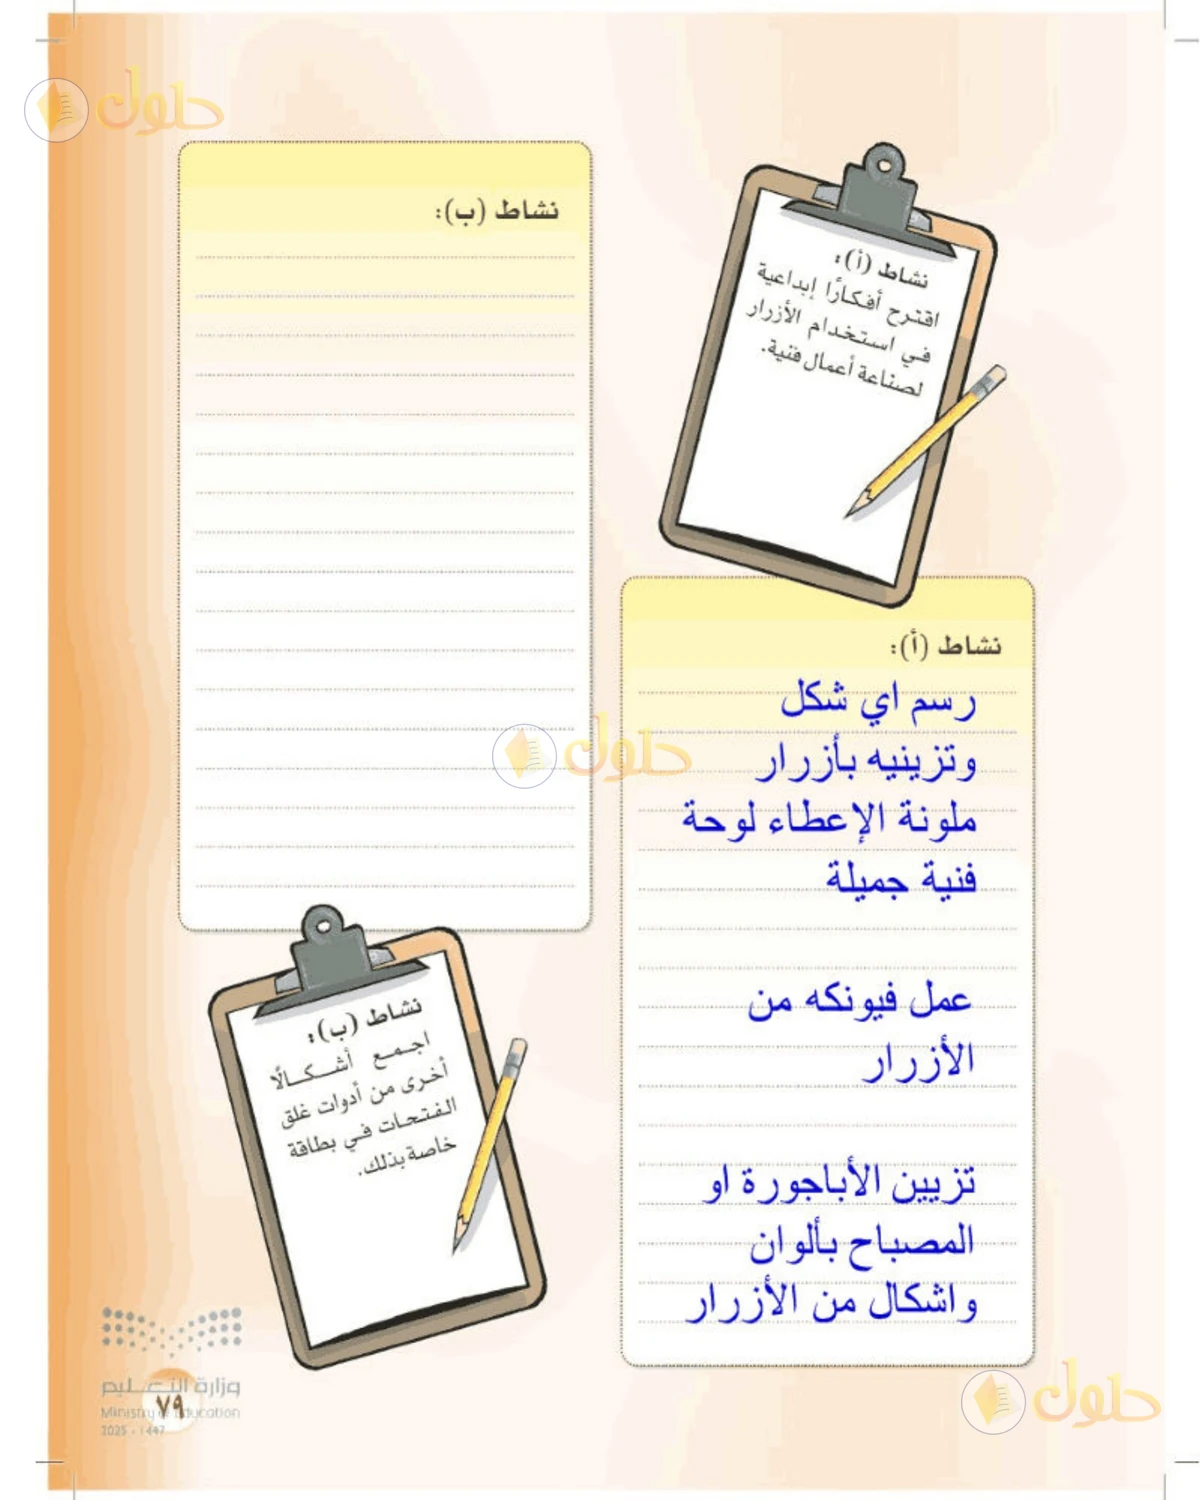 حلول
نشاط (أ):
اقترح أفكارًا إبداعية
في استخدام الأزرار
لصناعة أعمال فنية.
نشاط (أ):
رسم اي شكل
وتزينيه بأزرار
ملونة الإعطاء لوحة
فنية جميلة
عمل فيونكه من
الأزرار
تزيين الأباجورة او
المصباح بألوان
واشكال من الأزرار
نشاط (ب):
حلول
نشاط (ب):
اجمع أشكالًا
أخرى من أدوات غلق
الفتحات في بطاقة
خاصة بذلك.
وزارة التعليم
Ministry of Education
2025 - 1447
٧٩
حلول